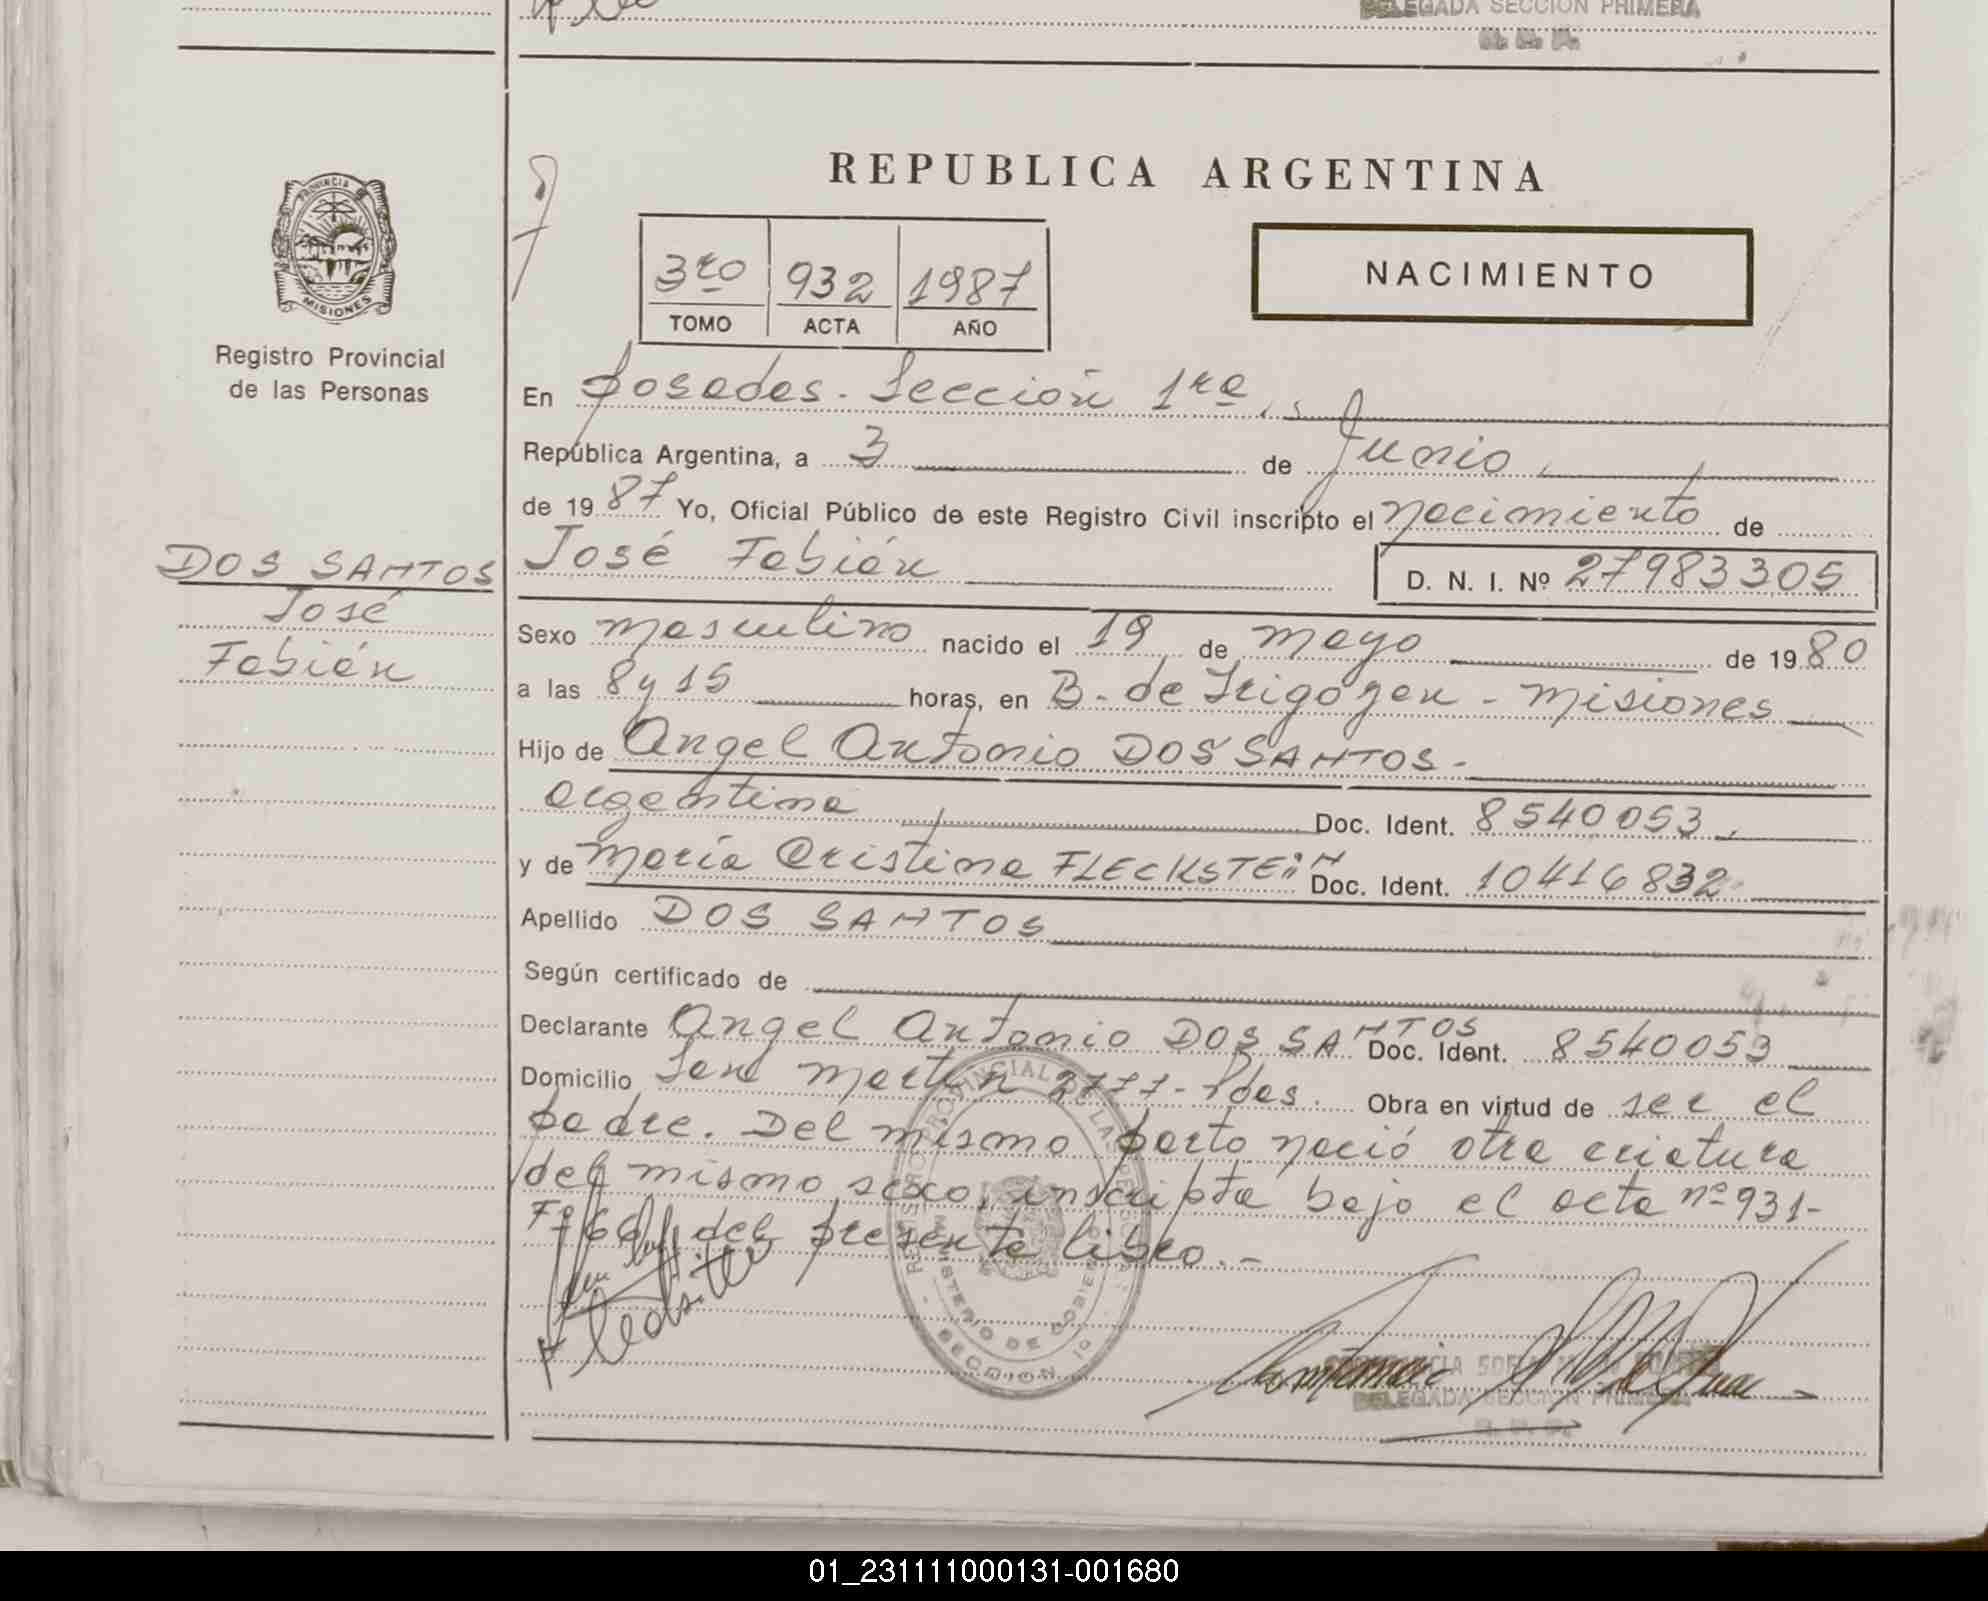 DELEGADA SECCION PRIMERA
R. P. P.
REPUBLICA ARGENTINA
PROVINCIA DE
MISIONES
Registro Provincial
de las Personas
3ro 932 1987
TOMO ACTA AÑO
NACIMIENTO
En Posadas - Sección 1ra,
República Argentina, a 3 de Junio,
de 1987 Yo, Oficial Público de este Registro Civil inscripto el nacimiento de
DOS SANTOS
José
Fabián
José Fabián D. N. I. Nº 27983305
Sexo masculino nacido el 19 de mayo de 1980
a las 8 y 15 horas, en B. de Irigoyen - Misiones
Hijo de Angel Antonio DOS SANTOS -
argentina Doc. Ident. 8540053.
y de María Cristina FLECKSTEiN Doc. Ident. 10416832
Apellido DOS SANTOS
Según certificado de
Declarante Angel Antonio DOS SANTOS Doc. Ident. 8540053
Domicilio San Martín 2777 - Pdas. Obra en virtud de ser el
padre. Del mismo parto nació otra criatura
del mismo sexo, inscripta bajo el acta nº 931-
Fº 66 del presente libro. -
REGISTRO PROVINCIAL DE LAS PERSONAS
MINISTERIO DE GOBIERNO
- SECCION 1º -
DELEGADA SECCION PRIMERA
R. P. P.
01_231111000131-001680